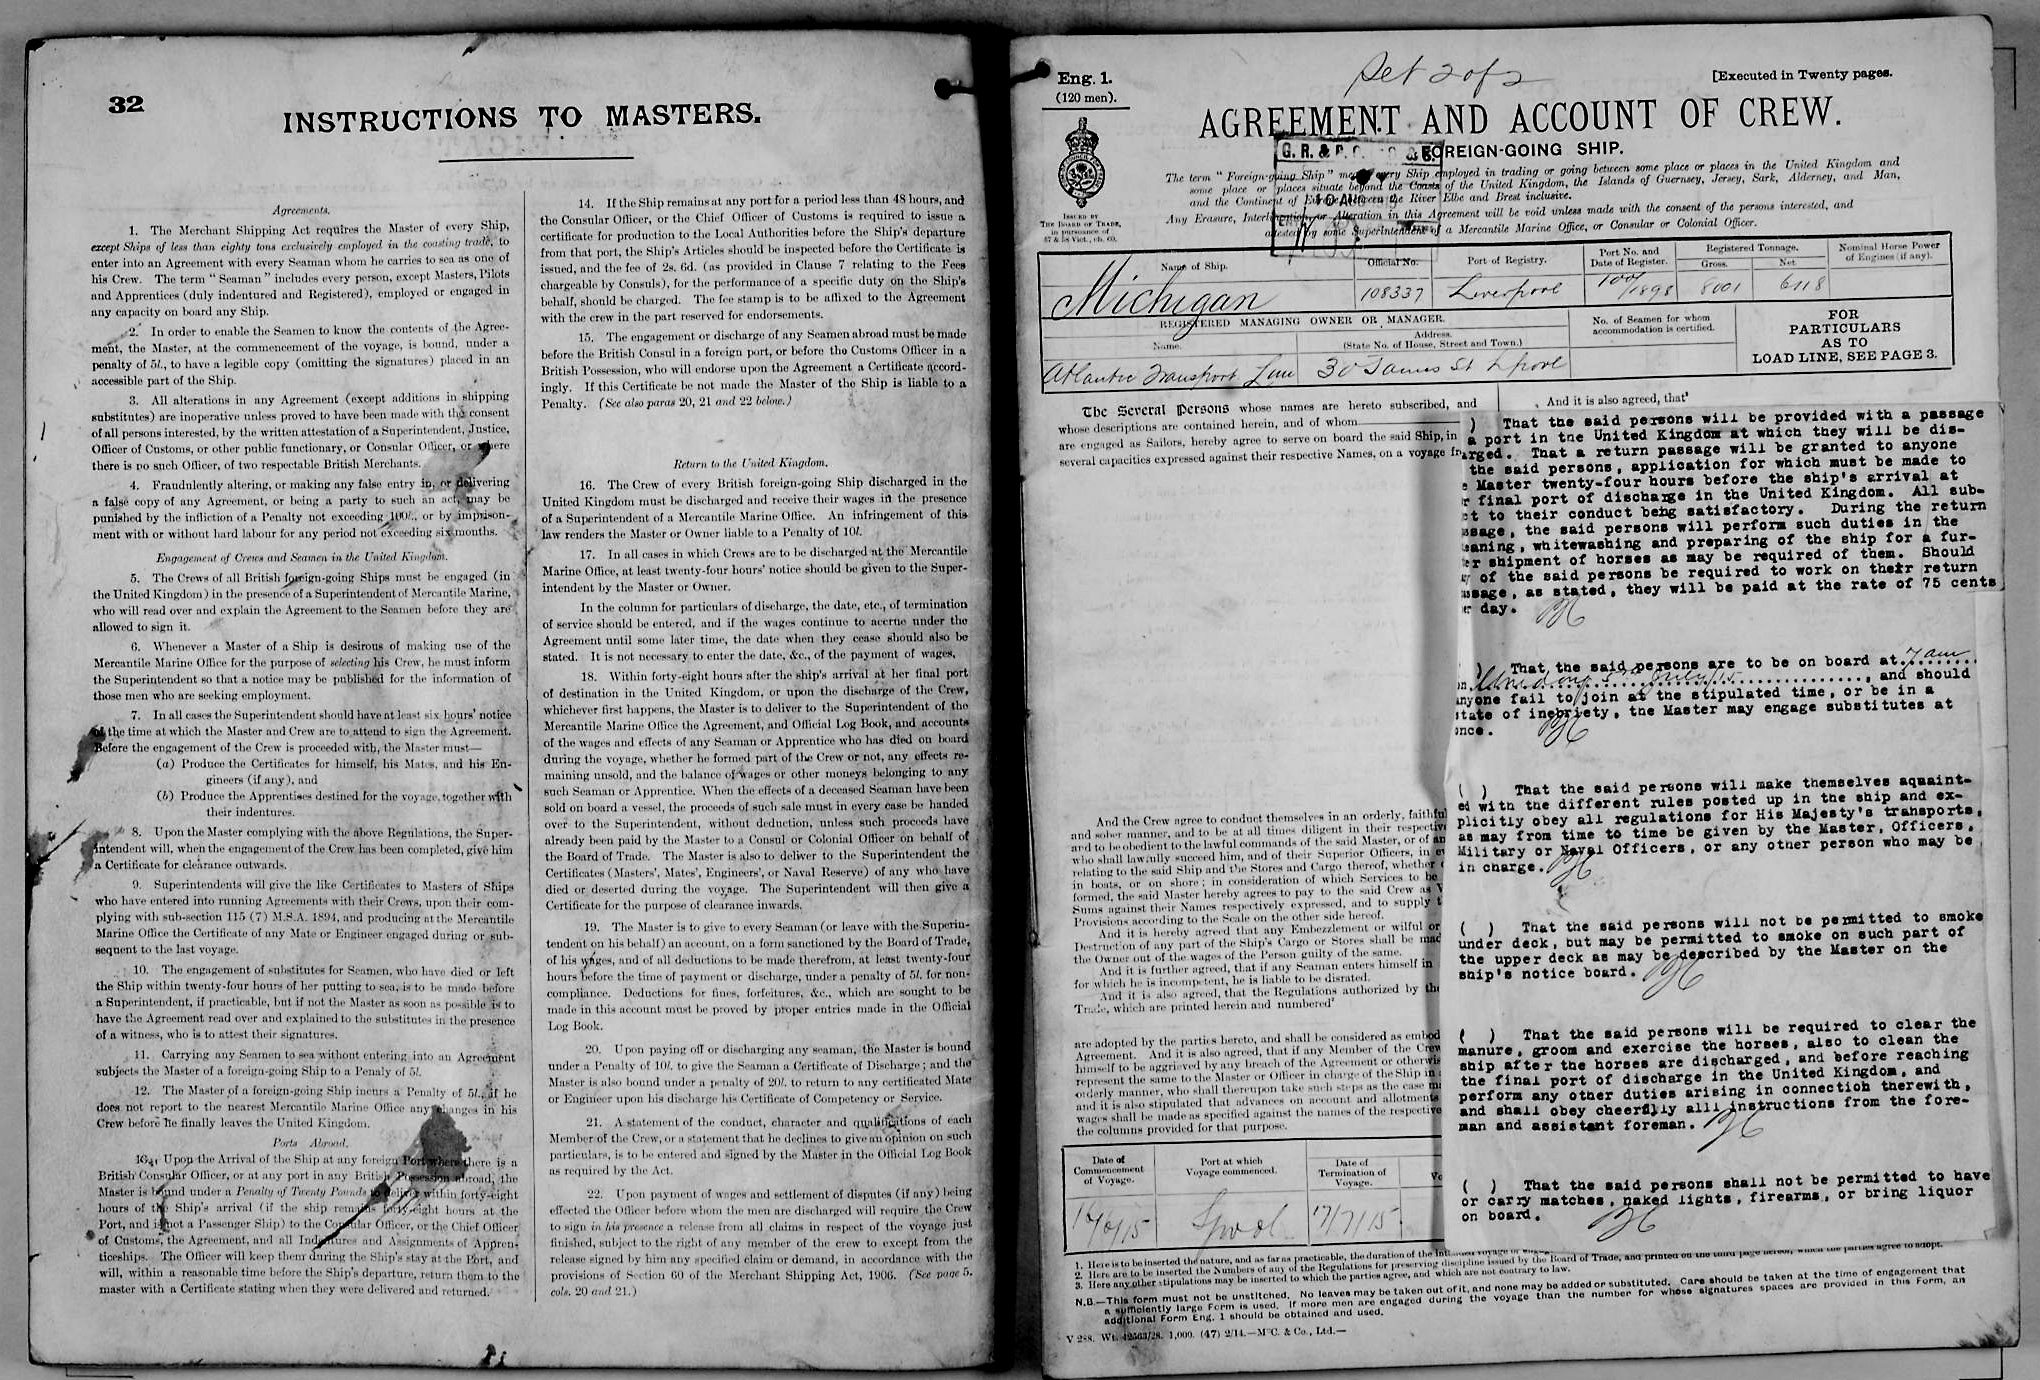 32
INSTRUCTIONS TO MASTERS.
Agreements.
1. The Merchant Shipping Act requires the Master of every Ship,
except Ships of less than eighty tons exclusively employed in the coasting trade, to
enter into an Agreement with every Seaman whom he carries to sea as one of
his Crew. The term "Seaman" includes every person, except Masters, Pilots
and Apprentices (duly indentured and Registered), employed or engaged in
any capacity on board any Ship.
2. In order to enable the Seamen to know the contents of the Agree-
ment, the Master, at the commencement of the voyage, is bound, under a
penalty of 5l., to have a legible copy (omitting the signatures) placed in an
accessible part of the Ship.
3. All alterations in any Agreement (except additions in shipping
substitutes) are inoperative unless proved to have been made with the consent
of all persons interested, by the written attestation of a Superintendent, Justice,
Officer of Customs, or other public functionary, or Consular Officer, or where
there is no such Officer, of two respectable British Merchants.
4. Fraudulently altering, or making any false entry in, or delivering
a false copy of any Agreement, or being a party to such an act, may be
punished by the infliction of a Penalty not exceeding 100l., or by imprison-
ment with or without hard labour for any period not exceeding six months.
Engagement of Crews and Seamen in the United Kingdom.
5. The Crews of all British foreign-going Ships must be engaged (in
the United Kingdom) in the presence of a Superintendent of Mercantile Marine,
who will read over and explain the Agreement to the Seamen before they are
allowed to sign it.
6. Whenever a Master of a Ship is desirous of making use of the
Mercantile Marine Office for the purpose of selecting his Crew, he must inform
the Superintendent so that a notice may be published for the information of
those men who are seeking employment.
7. In all cases the Superintendent should have at least six hours' notice
of the time at which the Master and Crew are to attend to sign the Agreement.
Before the engagement of the Crew is proceeded with, the Master must—
(a) Produce the Certificates for himself, his Mates, and his En-
gineers (if any), and
(b) Produce the Apprentises destined for the voyage, together with
their indentures.
8. Upon the Master complying with the above Regulations, the Super-
intendent will, when the engagement of the Crew has been completed, give him
a Certificate for clearance outwards.
9. Superintendents will give the like Certificates to Masters of Ships
who have entered into running Agreements with their Crews, upon their com-
plying with sub-section 115 (7) M.S.A. 1894, and producing at the Mercantile
Marine Office the Certificate of any Mate or Engineer engaged during or sub-
sequent to the last voyage.
10. The engagement of substitutes for Seamen, who have died or left
the Ship within twenty-four hours of her putting to sea, is to be made before
a Superintendent, if practicable, but if not the Master as soon as possible is to
have the Agreement read over and explained to the substitutes in the presence
of a witness, who is to attest their signatures.
11. Carrying any Seamen to sea without entering into an Agreement
subjects the Master of a foreign-going Ship to a Penaly of 5l.
12. The Master of a foreign-going Ship incurs a Penalty of 5l., if he
does not report to the nearest Mercantile Marine Office any changes in his
Crew before he finally leaves the United Kingdom.
Ports Abroad.
13. Upon the Arrival of the Ship at any foreign Port where there is a
British Consular Officer, or at any port in any British Possession abroad, the
Master is bound under a Penalty of Twenty Pounds to deliver within forty-eight
hours of the Ship's arrival (if the ship remains forty-eight hours at the
Port, and if not a Passenger Ship) to the Consular Officer, or the Chief Officer
of Customs, the Agreement, and all Indentures and Assignments of Appren-
ticeships. The Officer will keep them during the Ship's stay at the Port, and
will, within a reasonable time before the Ship's departure, return them to the
master with a Certificate stating when they were delivered and returned.
14. If the Ship remains at any port for a period less than 48 hours, and
the Consular Officer, or the Chief Officer of Customs is required to issue a
certificate for production to the Local Authorities before the Ship's departure
from that port, the Ship's Articles should be inspected before the Certificate is
issued, and the fee of 2s. 6d. (as provided in Clause 7 relating to the Fees
chargeable by Consuls), for the performance of a specific duty on the Ship's
behalf, should be charged. The fee stamp is to be affixed to the Agreement
with the crew in the part reserved for endorsements.
15. The engagement or discharge of any Seamen abroad must be made
before the British Consul in a foreign port, or before the Customs Officer in a
British Possession, who will endorse upon the Agreement a Certificate accord-
ingly. If this Certificate be not made the Master of the Ship is liable to a
Penalty. (See also paras 20, 21 and 22 below.)
Return to the United Kingdom.
16. The Crew of every British foreign-going Ship discharged in the
United Kingdom must be discharged and receive their wages in the presence
of a Superintendent of a Mercantile Marine Office. An infringement of this
law renders the Master or Owner liable to a Penalty of 10l.
17. In all cases in which Crews are to be discharged at the Mercantile
Marine Office, at least twenty-four hours' notice should be given to the Super-
intendent by the Master or Owner.
In the column for particulars of discharge, the date, etc., of termination
of service should be entered, and if the wages continue to accrue under the
Agreement until some later time, the date when they cease should also be
stated. It is not necessary to enter the date, &c., of the payment of wages.
18. Within forty-eight hours after the ship's arrival at her final port
of destination in the United Kingdom, or upon the discharge of the Crew,
whichever first happens, the Master is to deliver to the Superintendent of the
Mercantile Marine Office the Agreement, and Official Log Book, and accounts
of the wages and effects of any Seaman or Apprentice who has died on board
during the voyage, whether he formed part of the Crew or not, any effects re-
maining unsold, and the balance of wages or other moneys belonging to any
such Seaman or Apprentice. When the effects of a deceased Seaman have been
sold on board a vessel, the proceeds of such sale must in every case be handed
over to the Superintendent, without deduction, unless such proceeds have
already been paid by the Master to a Consul or Colonial Officer on behalf of
the Board of Trade. The Master is also to deliver to the Superintendent the
Certificates (Masters', Mates', Engineers', or Naval Reserve) of any who have
died or deserted during the voyage. The Superintendent will then give a
Certificate for the purpose of clearance inwards.
19. The Master is to give to every Seaman (or leave with the Superin-
tendent on his behalf) an account, on a form sanctioned by the Board of Trade,
of his wages, and of all deductions to be made therefrom, at least twenty-four
hours before the time of payment or discharge, under a penalty of 5l. for non-
compliance. Deductions for fines, forfeitures, &c., which are sought to be
made in this account must be proved by proper entries made in the Official
Log Book.
20. Upon paying off or discharging any seaman, the Master is bound
under a Penalty of 10l. to give the Seaman a Certificate of Discharge; and the
Master is also bound under a penalty of 20l. to return to any certificated Mate
or Engineer upon his discharge his Certificate of Competency or Service.
21. A statement of the conduct, character and qualifications of each
Member of the Crew, or a statement that he declines to give an opinion on such
particulars, is to be entered and signed by the Master in the Official Log Book
as required by the Act.
22. Upon payment of wages and settlement of disputes (if any) being
effected the Officer before whom the men are discharged will require the Crew
to sign in his presence a release from all claims in respect of the voyage just
finished, subject to the right of any member of the crew to except from the
release signed by him any specified claim or demand, in accordance with the
provisions of Section 60 of the Merchant Shipping Act, 1906. (See page 5.
cols. 20 and 21.)
Eng. 1.
(120 men).
Set 2 of 2
[Executed in Twenty pages.
AGREEMENT AND ACCOUNT OF CREW.
FOREIGN-GOING SHIP.
G. R. &
The term "Foreign-going Ship" means every Ship employed in trading or going between some place or places in the United Kingdom and
some place or places situate beyond the Coasts of the United Kingdom, the Islands of Guernsey, Jersey, Sark, Alderney, and Man,
and the Continent of Europe between the River Elbe and Brest inclusive.
Any Erasure, Interlineation or Alteration in this Agreement will be void unless made with the consent of the persons interested, and
attested by some Superintendent of a Mercantile Marine Office, or Consular or Colonial Officer.
ISSUED BY
THE BOARD OF TRADE,
in pursuance of
57 & 58 Vict., ch. 60.
Name of Ship.
Official No.
Port of Registry.
Port No. and
Date of Register.
Registered Tonnage.
Gross.
Net
Nominal Horse Power
of Engines (if any).
Michigan
108337
Liverpool
100/1898
8001
6118
REGISTERED MANAGING OWNER OR MANAGER.
Name.
Address.
(State No. of House, Street and Town.)
No. of Seamen for whom
accommodation is certified.
FOR
PARTICULARS
AS TO
LOAD LINE, SEE PAGE 3.
Atlantic Transport Line
30 James St Lpool
The Several Persons whose names are hereto subscribed, and
whose descriptions are contained herein, and of whom
are engaged as Sailors, hereby agree to serve on board the said Ship, in
several capacities expressed against their respective Names, on a voyage fr
And the Crew agree to conduct themselves in an orderly, faithful
and sober manner, and to be at all times diligent in their respective
and to be obedient to the lawful commands of the said Master, or of an
who shall lawfully succeed him, and of their Superior Officers, in ev
relating to the said Ship and the Stores and Cargo thereof, whether
in boats, or on shore; in consideration of which Services to be
formed, the said Master hereby agrees to pay to the said Crew as
Sums against their Names respectively expressed, and to supply
Provisions according to the Scale on the other side hereof.
And it is hereby agreed that any Embezzlement or wilful or
Destruction of any part of the Ship's Cargo or Stores shall be mad
the Owner out of the wages of the Person guilty of the same.
And it is further agreed, that if any Seaman enters himself in
for which he is incompetent, he is liable to be disrated.
And it is also agreed, that the Regulations authorized by the
Trade, which are printed herein and numbered²
are adopted by the parties hereto, and shall be considered as embod
Agreement. And it is also agreed, that if any Member of the Crew
himself to be aggrieved by any breach of the Agreement or otherwis
represent the same to the Master or Officer in charge of the Ship in
orderly manner, who shall thereupon take such steps as the case m
and it is also stipulated that advances on account and allotments
wages shall be made as specified against the names of the respective
the columns provided for that purpose.
And it is also agreed, that³
) That the said persons will be provided with a passage
a port in the United Kingdom at which they will be dis-
arged. That a return passage will be granted to anyone
the said persons, application for which must be made to
e Master twenty-four hours before the ship's arrival at
r final port of discharge in the United Kingdom. All sub-
ct to their conduct being satisfactory. During the return
ssage, the said persons will perform such duties in the
eaning, whitewashing and preparing of the ship for a fur-
er shipment of horses as may be required of them. Should
y of the said persons be required to work on their return
ssage, as stated, they will be paid at the rate of 75 cents
er day.
) That the said persons are to be on board at 7 am
on July/15, and should
anyone fail to join at the stipulated time, or be in a
state of inebriety, the Master may engage substitutes at
once.
( ) That the said persons will make themselves aquaint-
ed with the different rules posted up in the ship and ex-
plicitly obey all regulations for His Majesty's transports,
as may from time to time be given by the Master, Officers,
Military or Naval Officers, or any other person who may be
in charge.
( ) That the said persons will not be permitted to smoke
under deck, but may be permitted to smoke on such part of
the upper deck as may be described by the Master on the
ship's notice board.
( ) That the said persons will be required to clear the
manure, groom and exercise the horses, also to clean the
ship after the horses are discharged, and before reaching
the final port of discharge in the United Kingdom, and
perform any other duties arising in connection therewith,
and shall obey cheerfully alll instructions from the fore-
man and assistant foreman.
( ) That the said persons shall not be permitted to have
or carry matches, naked lights, firearms, or bring liquor
on board.
Date of
Commencement
of Voyage.
Port at which
Voyage commenced.
Date of
Termination of
Voyage.
Lpool
17/7/15
1. Here is to be inserted the nature, and as far as practicable, the duration of the
2. Here are to be inserted the Numbers of any of the Regulations for preserving discipline issued by the Board of Trade, and printed on the third page hereof, which the parties agree to adopt.
3. Here any other stipulations may be inserted to which the parties agree, and which are not contrary to law.
N.B.—This form must not be unstitched. No leaves may be taken out of it, and none may be added or substituted. Care should be taken at the time of engagement that
a sufficiently large Form is used. If more men are engaged during the voyage than the number for whose signatures spaces are provided in this Form, an
additional Form Eng. 1 should be obtained and used.
V 288. Wt. 42563/28. 1,000. (47) 2/14.—McC. & Co., Ltd.—